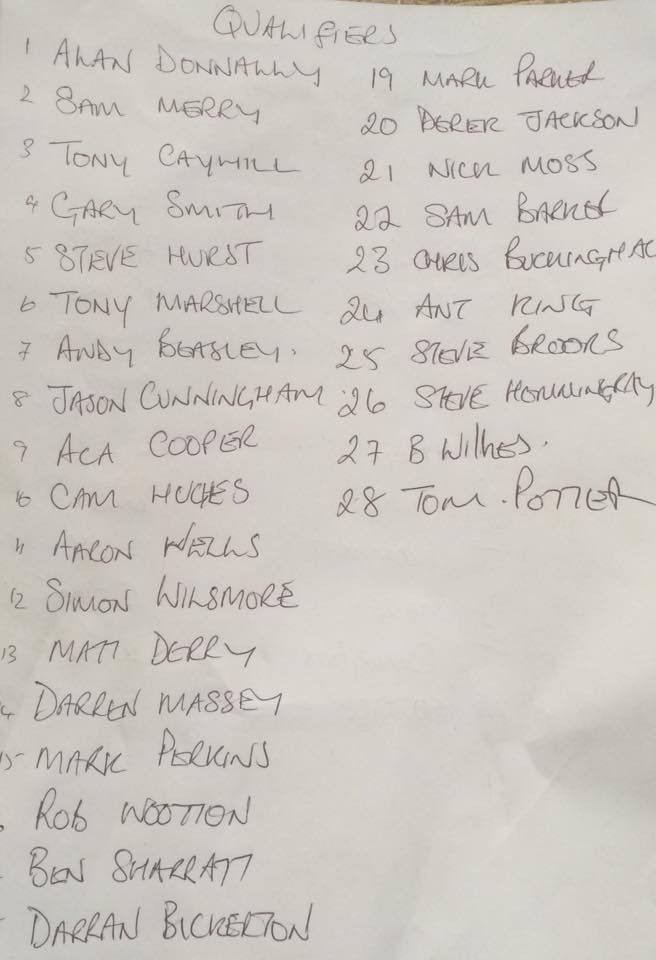 QUALIFIERS
1 ALAN DONNALLY
2 SAM MERRY
3 TONY CAYHILL
4 GARY SMITH
5 STEVE HURST
6 TONY MARSHELL
7 ANDY BEASLEY.
8 JASON CUNNINGHAM
9 ACA COOPER
10 CAM HUGHES
11 AARON WELLS
12 SIMON WILSMORE
13 MATT DERRY
DARREN MASSEY
MARK PERKINS
ROB WOOTTON
BEN SHARRATT
DARRAN BICKERTON
19 MARK PARKER
20 DEREK JACKSON
21 NICK MOSS
22 SAM BARKER
23 CHRIS BUCKINGHAM
24 ANT KING
25 STEVE BROOKS
26 STEVE
27 B Wilkes.
28 TOM. POTTER